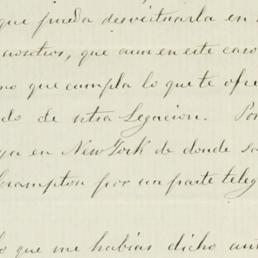 que pueda desvirtuarla en
nosotros, que aun en este caso
no que cumpla lo que te ofre
do de ntra Legacion. Por
ya en New York de donde sa
Crampton por un parte teleg
lo que me habias dicho ant